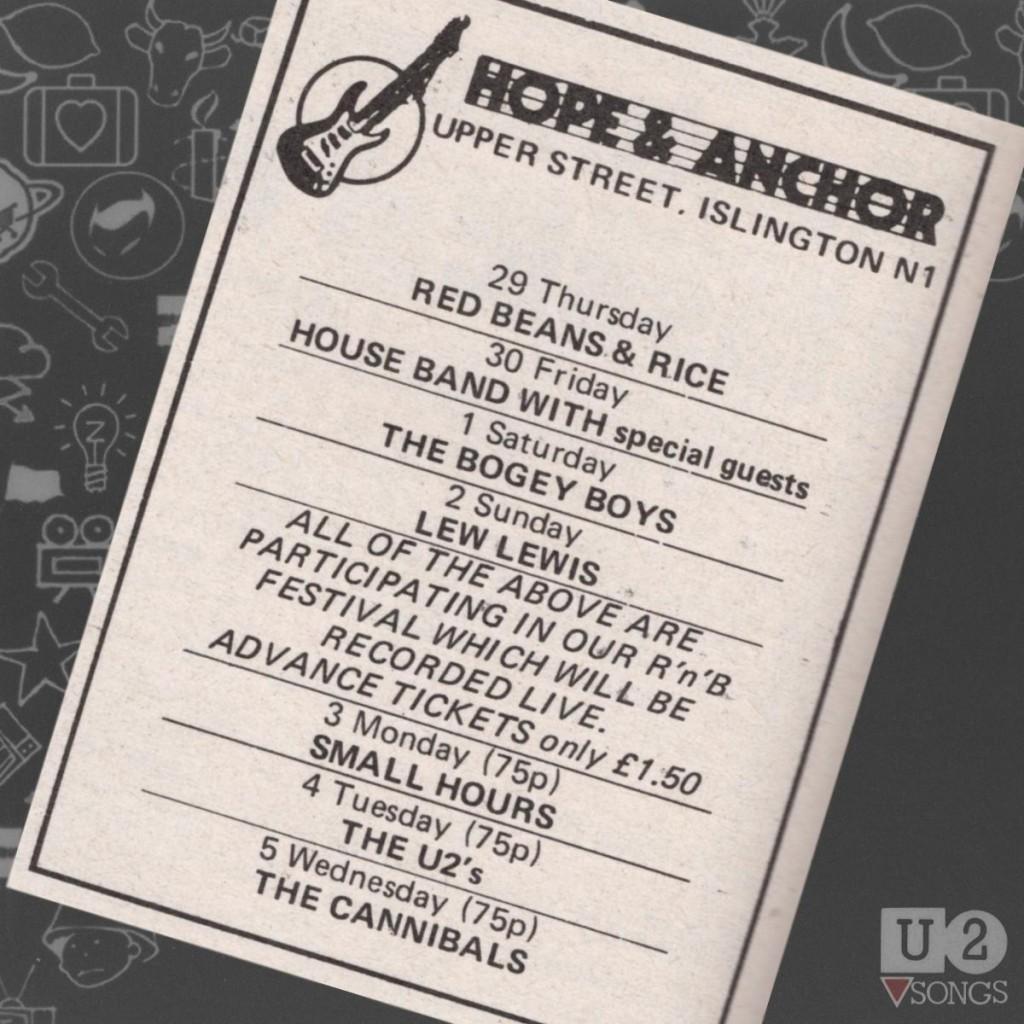 HOPE & ANCHOR
UPPER STREET. ISLINGTON N1
29 Thursday
RED BEANS & RICE
30 Friday
HOUSE BAND WITH special guests
1 Saturday
THE BOGEY BOYS
2 Sunday
LEW LEWIS
ALL OF THE ABOVE ARE
PARTICIPATING IN OUR R'n'B
FESTIVAL WHICH WILL BE
RECORDED LIVE.
ADVANCE TICKETS only £1.50
3 Monday (75p)
SMALL HOURS
4 Tuesday (75p)
THE U2's
5 Wednesday (75p)
THE CANNIBALS
U2
SONGS